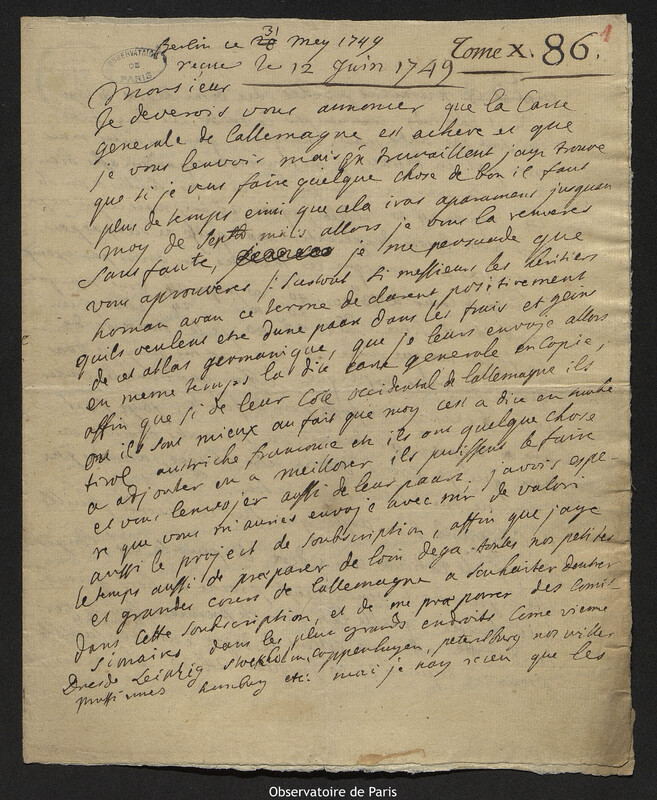 1
Berlin ce 31 Mey 1749
Tome X. 86.
OBSERVATOIRE DE PARIS
recue le 12 Juin 1749
Monsieur
Je deverois vous annoncer que la Carte
generale de lallemagne est acheve et que
je vous lenvois mais en travaillent jayz trouve
que si je veus faire quelque chose de bon il faus
plus de temps einsi que cela iras aparament jusquau
moy de Septb mils allors je vous la remeres
sans faute, je me persuade que
vous aprouveres /: Surtout si messieurs les heritiers
homan avan ce terme declarent positivement
quils veulent etre dune paar dans les frais et geins
de cet atlas germanique, que je leurs envoje allors
en meme temps la dite carte generale en Copie,
affin que si de leur Cote occidental de lallemagne ils
ou il sont mieux au fait que moy cest a dire en
tirol austriche franconie etc ils ont quelque chose
a adjouter ou a meillorer ils puissent le faire
et vous lenvojer aussi de leur paart, j'avois espe-
re que vous m'auries envoje avec mr de valori
aussi le project de Soubscription, affin que jaye
le temps aussi de preparer de loin dega toutes nos petites
et grandes cours de lallemagne a souhaiter dentrer
dans cette soubscription, et de me preparer des Comis-
Sionaires dans les plus grands endroits Come vienne
Dresde Leipzig Stockholm, Coppenhagen, petersburg nos villes
prussiennes hamburg etc: mai je nay rien que les
Observatoire de Paris